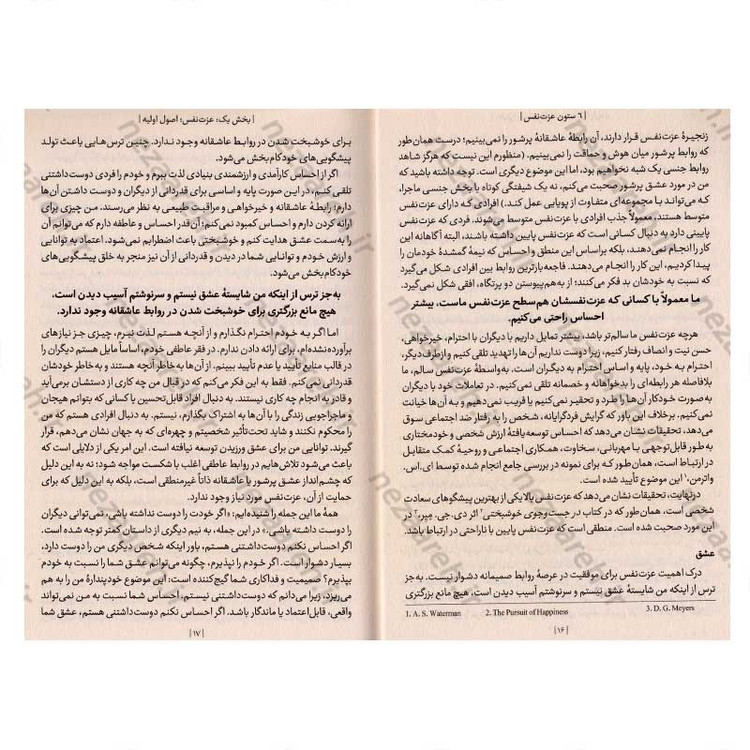 | ۶ ستون عزت‌نفس |
زنجیرهٔ عزت‌نفس قرار دارند، آن رابطهٔ عاشقانهٔ پرشور را نمی‌بینیم؛ درست همان‌طور
که روابط پرشور میان هوش و حماقت را نمی‌بینیم. (منظورم این نیست که هرگز شاهد
روابط جنسی یک شبه نخواهیم بود، اما این موضوع دیگری است. توجه داشته باشید که
من در مورد عشق پرشور صحبت می‌کنم، نه یک شیفتگی کوتاه یا بخش جنسی ماجرا،
که می‌تواند با مجموعه‌ای متفاوت از پویایی عمل کند.) افرادی که دارای عزت‌نفس
متوسط هستند، معمولاً جذب افرادی با عزت‌نفس متوسط می‌شوند. فردی که عزت‌نفس
پایینی دارد به دنبال کسانی است که عزت‌نفس پایین داشته باشند، البته آگاهانه این
کار را انجام نمی‌دهند، بلکه براساس این منطق و احساس که نیمهٔ گمشدهٔ خودمان را
پیدا کردیم، این کار را انجام می‌دهند. فاجعه‌بارترین روابط بین افرادی شکل می‌گیرد
که نسبت به خودشان بد فکر می‌کنند؛ از به‌هم‌پیوستن دو پرتگاه، افقی شکل نمی‌گیرد.
ما معمولاً با کسانی که عزت‌نفسشان هم‌سطح عزت‌نفس ماست، بیشتر
احساس راحتی می‌کنیم.
هرچه عزت‌نفس ما سالم‌تر باشد، بیشتر تمایل داریم با دیگران با احترام، خیرخواهی،
حسن نیت و انصاف رفتار کنیم، زیرا دوست نداریم آن‌ها را تهدید تلقی کنیم و از طرف دیگر،
احترام به خود، پایه و اساس احترام به دیگران است. به‌واسطهٔ عزت‌نفس سالم، ما
بلافاصله هر رابطه‌ای را بدخواهانه و خصمانه تلقی نمی‌کنیم. در تعاملات خود با دیگران
به‌صورت خودکار آن‌ها را طرد و تحقیر نمی‌کنیم یا فریب نمی‌دهیم و به آن‌ها خیانت
نمی‌کنیم. برخلاف این باور که گرایش فردگرایانه، شخص را به رفتار ضد اجتماعی سوق
می‌دهد، تحقیقات نشان می‌دهد که احساس توسعه‌یافتهٔ ارزش شخصی و خودمختاری
به طور قابل‌توجهی با مهربانی، سخاوت، همکاری اجتماعی و روحیهٔ کمک متقابل
در ارتباط است، همان‌طور که برای نمونه در بررسی جامع انجام شده توسط ای.اس.
واترمن،¹ این موضوع تأیید شده است.
درنهایت، تحقیقات نشان می‌دهد که عزت‌نفس بالا یکی از بهترین پیشگوهای سعادت
شخصی است، همان‌طور که در کتاب در جست‌وجوی خوشبختی² اثر دی.جی. میرز،³ در
این مورد صحبت شده است. منطقی است که عزت‌نفس پایین با ناراحتی در ارتباط باشد.
عشق
درک اهمیت عزت‌نفس برای موفقیت در عرصهٔ روابط صمیمانه دشوار نیست. به‌جز
ترس از اینکه من شایستهٔ عشق نیستم و سرنوشتم آسیب دیدن است، هیچ مانع بزرگتری
1. A. S. Waterman 2. The Pursuit of Happiness 3. D. G. Meyers
| ۱۶ |
| بخش یک: عزت‌نفس؛ اصول اولیه |
برای خوشبخت شدن در روابط عاشقانه وجود ندارد. چنین ترس‌هایی باعث تولد
پیشگویی‌های خودکام‌بخش می‌شود.
اگر از احساس کارآمدی و ارزشمندی بنیادی لذت ببرم و خودم را فردی دوست‌داشتنی
تلقی کنم، در این صورت پایه و اساسی برای قدردانی از دیگران و دوست داشتن آن‌ها
دارم؛ رابطهٔ عاشقانه و خیرخواهی و مراقبت طبیعی به نظر می‌رسند. من چیزی برای
ارائه کردن دارم و احساس کمبود نمی‌کنم؛ آن‌قدر احساس و عاطفه دارم که می‌توانم آن
را به سمت عشق هدایت کنم و خوشبختی باعث اضطرابم نمی‌شود. اعتماد به توانایی
و ارزش خودم و توانایی شما در دیدن و قدردانی از آن نیز منجر به خلق پیشگویی‌های
خودکام‌بخش می‌شود.
به‌جز ترس از اینکه من شایستهٔ عشق نیستم و سرنوشتم آسیب دیدن است،
هیچ مانع بزرگتری برای خوشبخت شدن در روابط عاشقانه وجود ندارد.
اما اگر به خودم احترام نگذارم و از آنچه هستم لذت نبرم، چیزی جز نیازهای
برآورده‌نشده‌ام، برای ارائه دادن ندارم. در فقر عاطفی خودم، اساساً مایل هستم دیگران را
در قالب منابع تأیید یا عدم تأیید ببینم. از آن‌ها به خاطر آنچه هستند و به خاطر خودشان
قدردانی نمی‌کنم. فقط به این فکر می‌کنم که در قبال من چه کاری از دستشان برمی‌آید
و قادر به انجام چه کاری نیستند. به دنبال افراد قابل‌تحسین یا کسانی که بتوانم هیجان
و ماجراجویی زندگی را با آن‌ها به اشتراک بگذارم، نیستم. به دنبال افرادی هستم که من
را محکوم نکنند و شاید تحت‌تأثیر شخصیتم و چهره‌ای که به جهان نشان می‌دهم، قرار
گیرند. توانایی من برای عشق ورزیدن توسعه نیافته است. این امر یکی از دلایلی است که
باعث می‌شود تلاش‌هایم در روابط عاطفی اغلب با شکست مواجه شود؛ نه به این دلیل
که چشم‌انداز عشق پرشور یا عاشقانه ذاتاً غیرمنطقی است، بلکه به این دلیل که برای
حمایت از آن، عزت‌نفس مورد نیاز وجود ندارد.
همهٔ ما این جمله را شنیده‌ایم: «اگر خودت را دوست نداشته باشی، نمی‌توانی دیگران
را دوست داشته باشی.» در این جمله، به نیم دیگری از داستان کمتر توجه شده است.
اگر احساس نکنم دوست‌داشتنی هستم، باور اینکه شخص دیگری من را دوست دارد،
بسیار دشوار است. اگر خودم را نپذیرم، چگونه می‌توانم عشق شما را نسبت به خودم
بپذیرم؟ صمیمیت و فداکاری شما گیج‌کننده است: این موضوع خودپندارهٔ من را به هم
می‌ریزد، زیرا می‌دانم که دوست‌داشتنی نیستم. احساس شما نسبت به من نمی‌تواند
واقعی، قابل‌اعتماد یا ماندگار باشد. اگر احساس نکنم دوست‌داشتنی هستم، عشق شما
| ۱۷ |